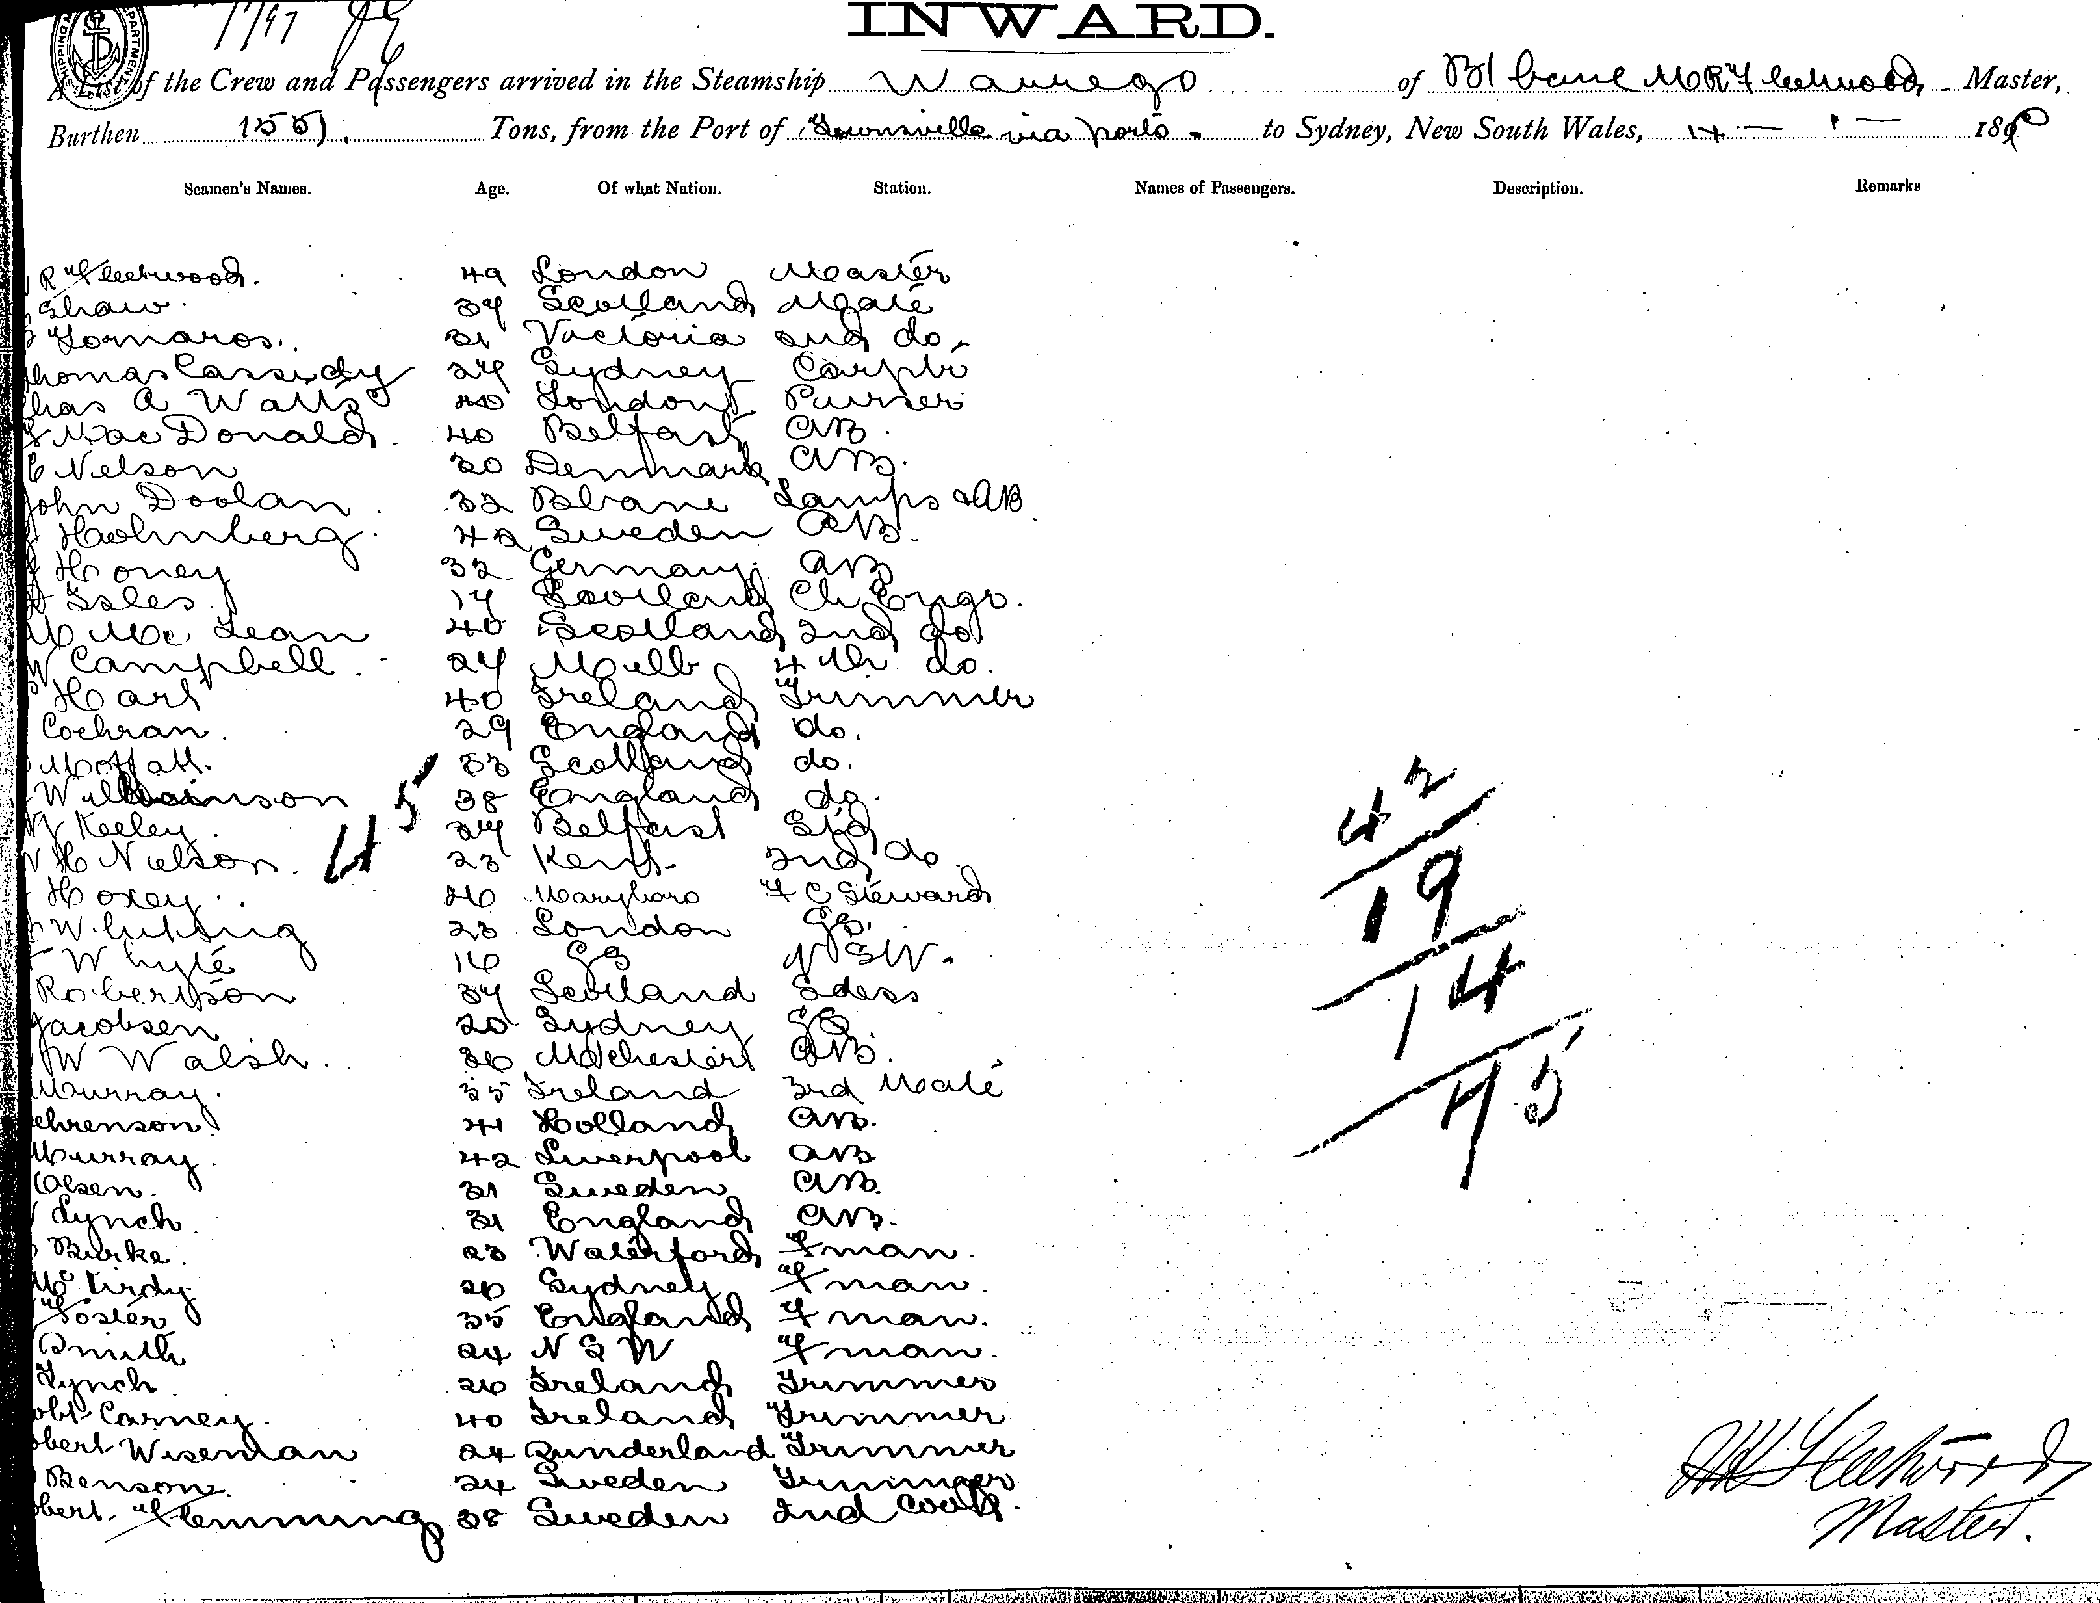 INWARD.
A List of the Crew and Passengers arrived in the Steamship Warrego of Bl bane M R Fleetwood Master,
Burthen 1551. Tons, from the Port of Townsville via ports to Sydney, New South Wales, 14 - 1 - 1890
Seamen's Names. Age. Of what Nation. Station. Names of Passengers. Description. Remarks
R Fleetwood. 49 London Master
Shaw. 34 Scotland Mate
31 Victoria 2nd do.
homas Cassidy 24 Sydney Carptr
has A Watts London Purser
MacDonald 40 Belfast AB.
C Nelson 30 Denmark AB.
John Doolan 32 Bbane Lamps & AB
Holmberg 42 Sweden AB.
Honey 32 Germany AB
Isles Scotland Ch Engr.
Mc Lean 40 Scotland 2nd do
W Campbell 24 Melb 4th do.
Hart 40 Ireland Trimmer
Cochran. 29 England do.
Moffatt. 33 Scotland do.
38 England do.
Keeley. 24 Belfast Std
W H Nielson. 23 Kent 2nd do
45
Hoxey 20 Maryboro F C Steward
Whiting 23 London GS.
Whyte 16 GS NSW.
Robertson 34 Scotland Sdess
Jacobsen 20 Sydney GS.
W Walsh. 36 Mchester AB.
Murray. 35 Ireland 3rd Mate
ehrenson. 41 Holland AB.
Murray. 42 Liverpool AB
Olsen. 31 Sweden AB.
Lynch. 31 England AB.
Burke. 23 Waterford Fman.
McCurdy 26 Sydney Fman.
Foster 35 England Fman.
Smith 24 N S W Fman.
Lynch 26 Ireland Trimmer
obt Carney. 40 Ireland Trimmer
obert Wiseman 24 Sunderland Trimmer
Benson. 24 Sweden Trimmer
obert Flemming 38 Sweden 2nd Cook.
42
19
14
75
Fleetwood
Master.